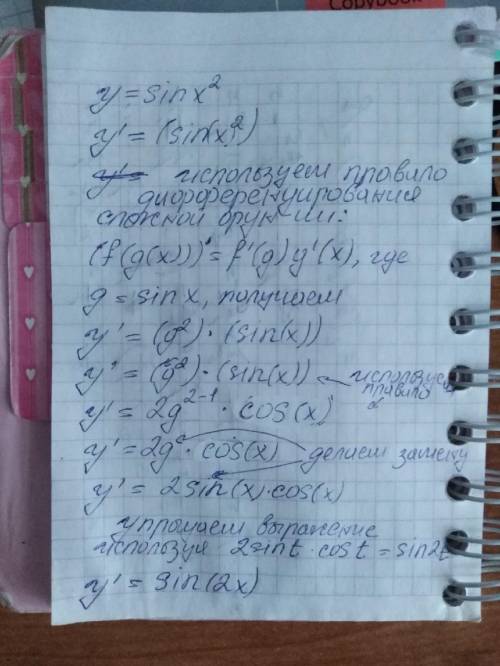 Copybook
y = sin x²
y' = (sin(x²)
y'= используем правило
дифференцирования
сложной функции:
(f(g(x)))' = f'(g) g'(x), где
g = sin x, получаем
y' = (g²) · (sin(x))
y' = (g²) · (sin(x)) ← используем правило
y' = 2g²⁻¹ · cos(x)
y' = 2g · cos(x) делаем замену
y' = 2 sin(x) · cos(x)
упрощаем выражение
используя 2sin t · cos t = sin 2t
y' = sin(2x)